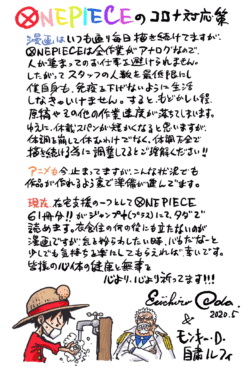 ONEPIECEのコロナ対応策
漫画はいつも通り毎日描き続けてますが、
ONEPIECEは全作業がアナログなので、
人が集まってのお仕事も避けられません。
したがってスタッフの人数を最低限にし
僕自身も、免疫を下げないように生活
しなきゃいけません。すると、もどかしい程、
原稿やその他の作業速度が落ちてしまいます。
ゆえに、休載スパンが短かくなると思いますが、
体調を崩して休むわけでなく、体調万全で
描き続ける為に調整してるとご理解ください!!
アニメも今止まってますが、こんな状況でも
作品が作れるよう裏で準備が進んでます。
現在、在宅支援の一つとしてONEPIECE
61冊分!!がジャンプ+(プラス)にて、タダで
読めます。在全生の何の役にも立たないのが
漫画ですが、気を紛らわしたい時、バカだなーと
少しでも気持ちを楽にしてもらえれば、幸いです。
皆様の心体の健康と無事を
心より、心より祈ってます!!!
Eiichiro Oda.
2020.5
&
モンキー・D・
自粛ルフィ